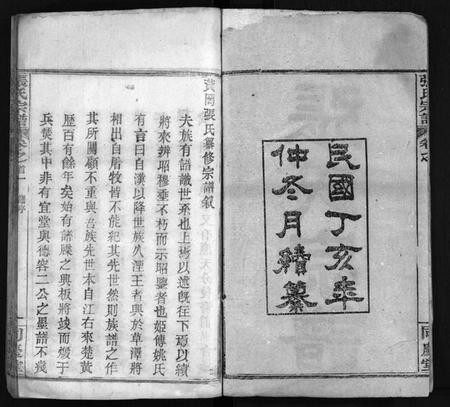 張氏宗譜
卷之首
民國丁亥年
仲冬月續纂
黃岡張氏纂修宗譜敘
夫族有譜譏世系也上焉以遡旣往下焉以續
將來辨昭穆垂不朽而示昭鑒者也姬傳姚氏
有言曰自漢以降世族久湮王者興於草澤將
相出自屠牧皆不能紀其先世然則族譜之作
其所關顧不重與吾族先世本自江右來楚黃
歷百有餘年矣始有譜牒之興板將竣而燬于
兵燹其中非有宜堂與德容二公之墨譜不幾
張氏宗譜
卷之首